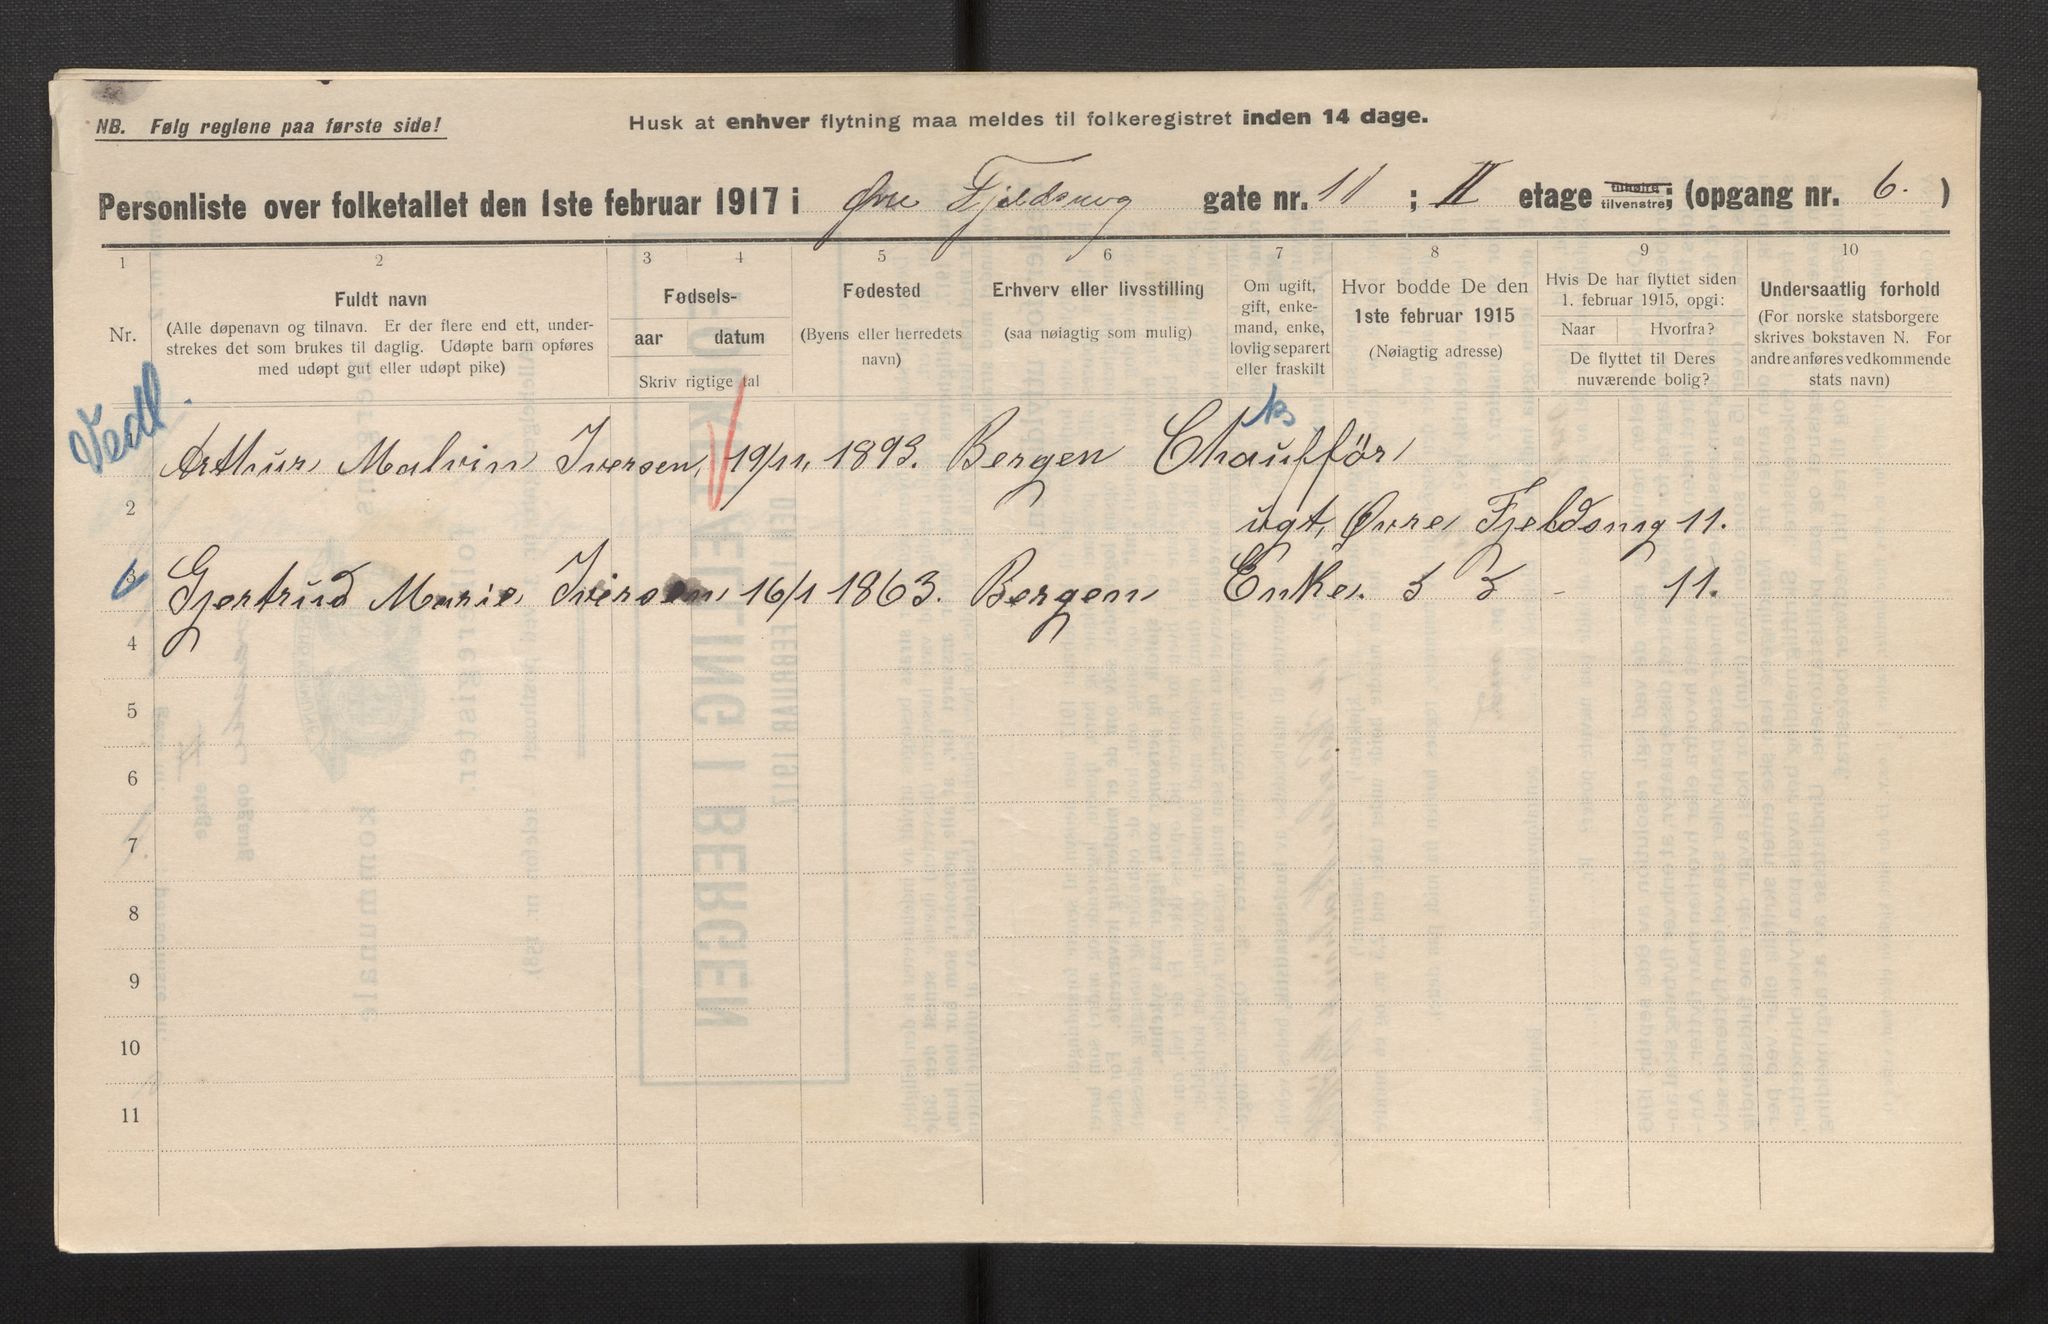 NB. Følg reglene paa første side!
Husk at enhver flytning maa meldes til folkeregistret inden 14 dage.
Personliste over folketallet den 1ste februar 1917 i Øvre Fjeldsmug gate nr. 11 ; II etage tilhøire tilvenstre; (opgang nr. 6. )
1 2 3 4 5 6 7 8 9 10
Nr.
Fuldt navn
(Alle døpenavn og tilnavn. Er der flere end ett, under-
strekes det som brukes til daglig. Udøpte barn opføres
med udøpt gut eller udøpt pike)
Fødsels-
aar datum
Skriv rigtige tal
Fødested
(Byens eller herredets
navn)
Erhverv eller livsstilling
(saa nøiagtig som mulig)
Om ugift,
gift, enke-
mand, enke,
lovlig separert
eller fraskilt
Hvor bodde De den
1ste februar 1915
(Nøiagtig adresse)
Hvis De har flyttet siden
1. februar 1915, opgi:
Naar Hvorfra?
De flyttet til Deres
nuværende bolig?
Undersaatlig forhold
(For norske statsborgere
skrives bokstaven N. For
andre anføres vedkommende
stats navn)
Vedl.
Arthur Malvin Iversen, 19/11, 1893. Bergen Chaufför
2 ugt, Øvre Fjeldsmug 11.
3 Gjertrud Marie Iversen 16/1 1863. Bergen Enke. 11.
4
5
6
7
8
9
10
11